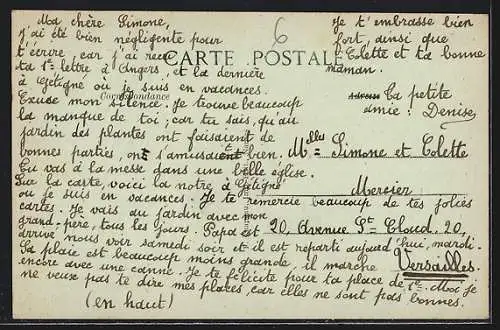 Ma chère Simone,
j'ai été bien négligente pour
t'écrire, car j'ai reçu
ta 1e lettre à Angers, et la dernière
à Gétigné où je suis en vacances.
Excuse mon silence. Je trouve beaucoup
la manque de toi; car tu sais, qu'au
jardin des plantes ont faisaient de
bonnes parties, on s'amusait bien.
Tu vas à la messe dans une belle église.
Sur la carte, voici la notre à Gétigné
ou je suis en vacances. Je te remercie beaucoup de tes jolies
cartes. Je vais au jardin avec mon
grand-père, tous les jours. Papa est
arrivé nous voir samedi soir et il est reparti aujourd'hui, mardi.
Sa plaie est beaucoup moins grande, il marche
encore avec une canne. Je te félicite pour ta place de 1e. Moi je
ne veux pas te dire mes places, car elles ne sont pas bonnes.
(en haut)
6
Je t'embrasse bien
fort, ainsi que
Colette et ta bonne
maman.
CARTE POSTALE
Correspondance
Ta petite
amie: Denise
Melles Simone et Colette
Mercier
20, Avenue St Cloud. 20,
Versailles.